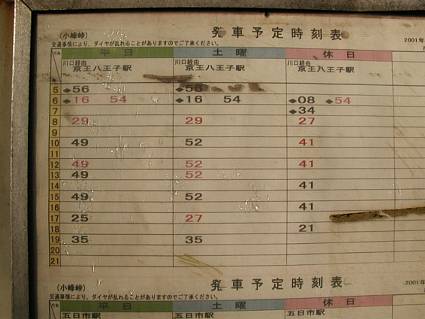 (小峰峠) 発車予定時刻表 2001年
交通事情により、ダイヤが乱れることがありますのでご了承ください。
平日 土曜 休日
川口経由 川口経由
京王八王子駅 京王八王子駅 京王八王子駅
5 ◆56 ◆56
6 ◆16 54 ◆16 54 ◆08 ◆54
7 ◆34
8 29 29 27
9
10 49 52 41
11
12 49 52 41
13 49 52
14 41
15 49 52
16 41
17 25 27
18 21
19 35 35
20
21
(小峰峠) 発車予定時刻表 2001年
交通事情により、ダイヤが乱れることがありますのでご了承ください。
平日 土曜 休日
五日市駅 五日市駅 五日市駅